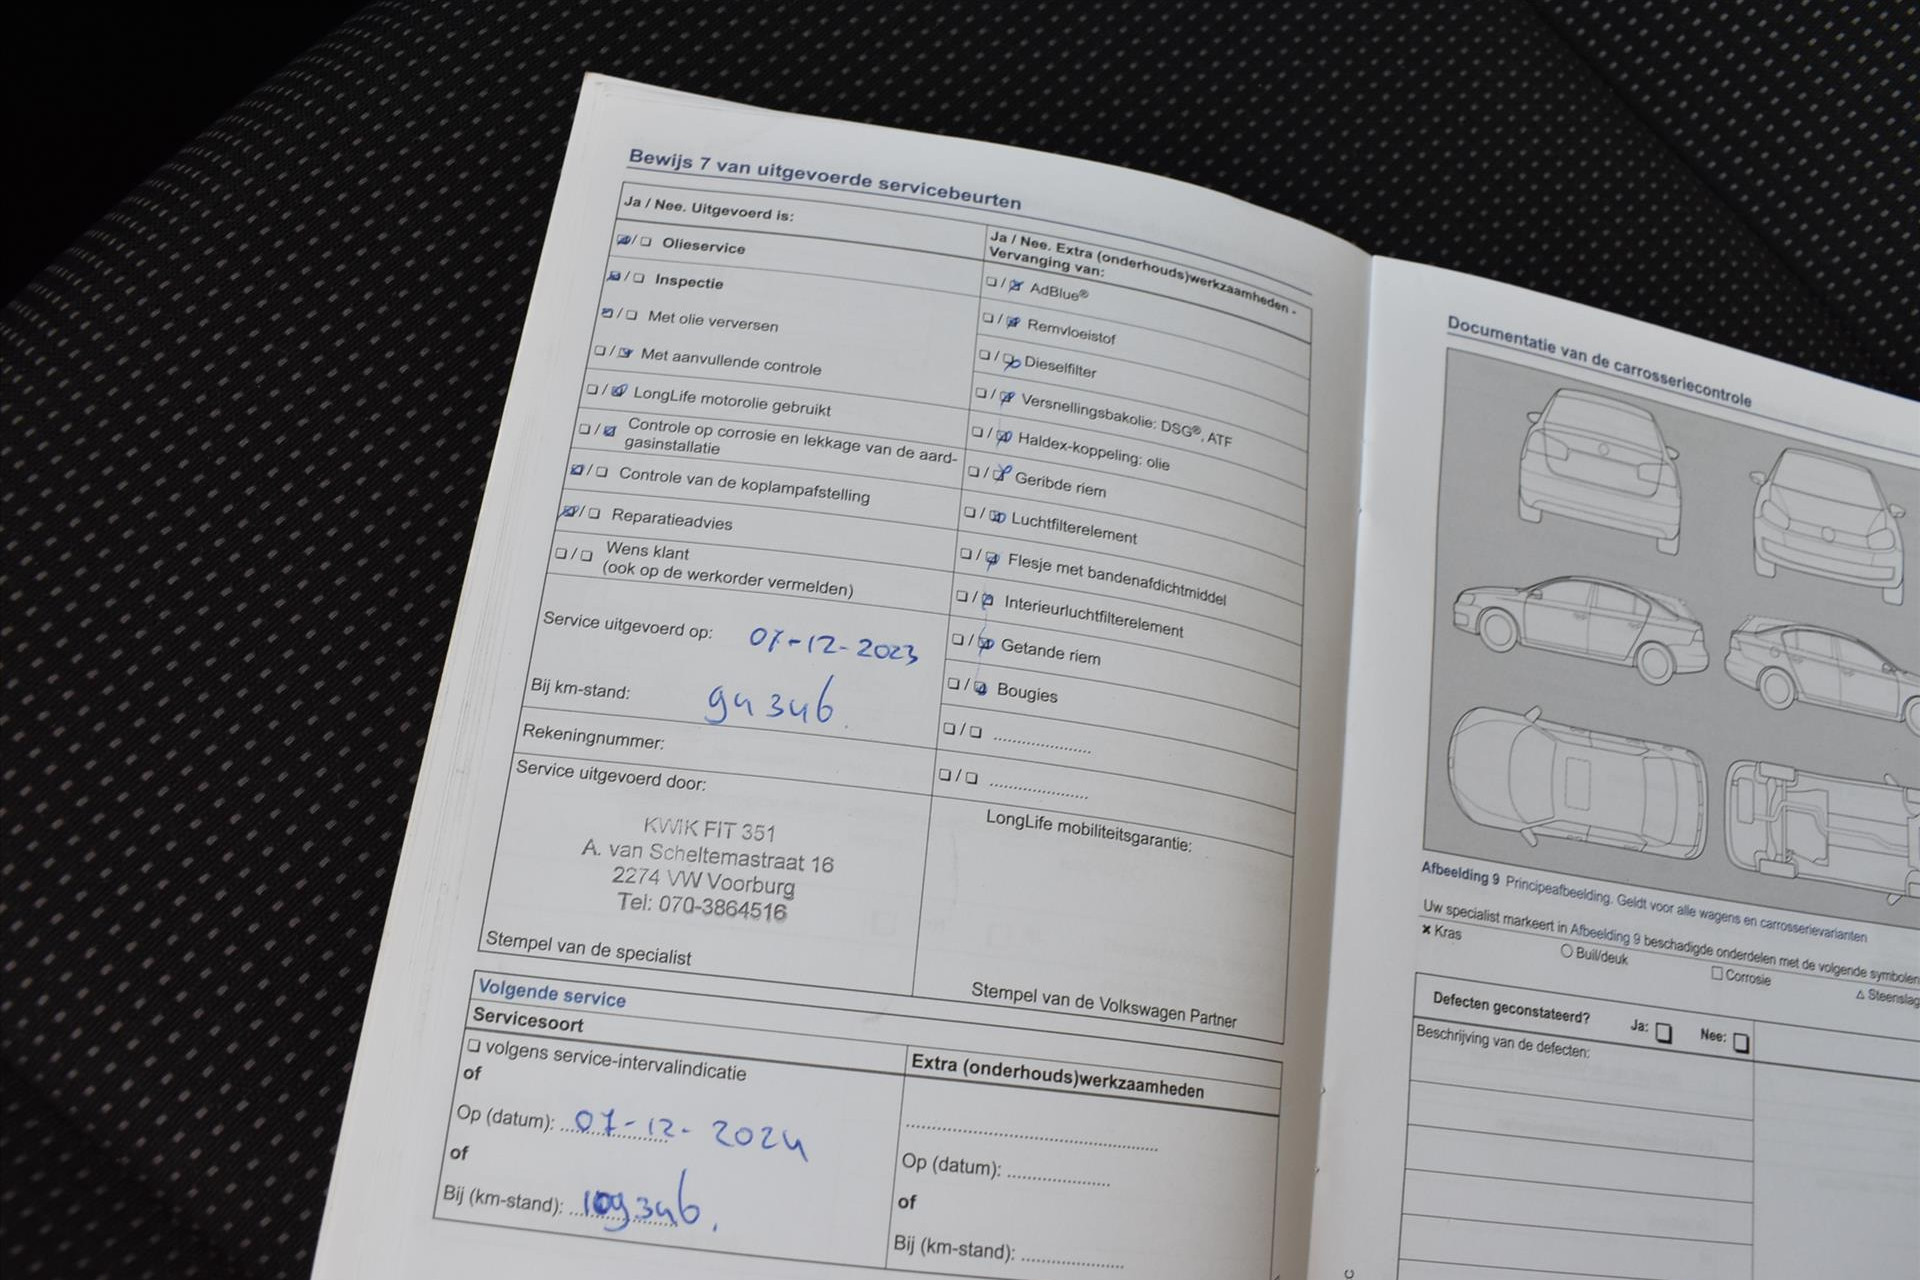 Bewijs 7 van uitgevoerde servicebeurten
Ja / Nee. Uitgevoerd is:
Olieservice
Inspectie
Met olie verversen
Met aanvullende controle
LongLife motorolie gebruikt
Controle op corrosie en lekkage van de aard-
gasinstallatie
Controle van de koplampafstelling
Reparatieadvies
Wens klant
(ook op de werkorder vermelden)
Service uitgevoerd op: 07-12-2023
Bij km-stand: 94346.
Rekeningnummer:
Service uitgevoerd door:
KWIK FIT 351
A. van Scheltemastraat 16
2274 VW Voorburg
Tel: 070-3864516
Stempel van de specialist
Ja / Nee. Extra (onderhouds)werkzaamheden -
Vervanging van:
AdBlue®
Remvloeistof
Dieselfilter
Versnellingsbakolie: DSG®, ATF
Haldex-koppeling: olie
Geribde riem
Luchtfilterelement
Flesje met bandenafdichtmiddel
Interieurluchtfilterelement
Getande riem
Bougies
LongLife mobiliteitsgarantie:
Stempel van de Volkswagen Partner
Volgende service
Servicesoort
volgens service-intervalindicatie
of
Op (datum): 07-12-2024
of
Bij (km-stand): 109346.
Extra (onderhouds)werkzaamheden
Op (datum):
of
Bij (km-stand):
Documentatie van de carrosseriecontrole
Afbeelding 9 Principeafbeelding. Geldt voor alle wagens en carrosserievarianten
Uw specialist markeert in Afbeelding 9 beschadigde onderdelen met de volgende symbolen
Kras Buil/deuk Corrosie Steenslag
Defecten geconstateerd? Ja: Nee:
Beschrijving van de defecten: